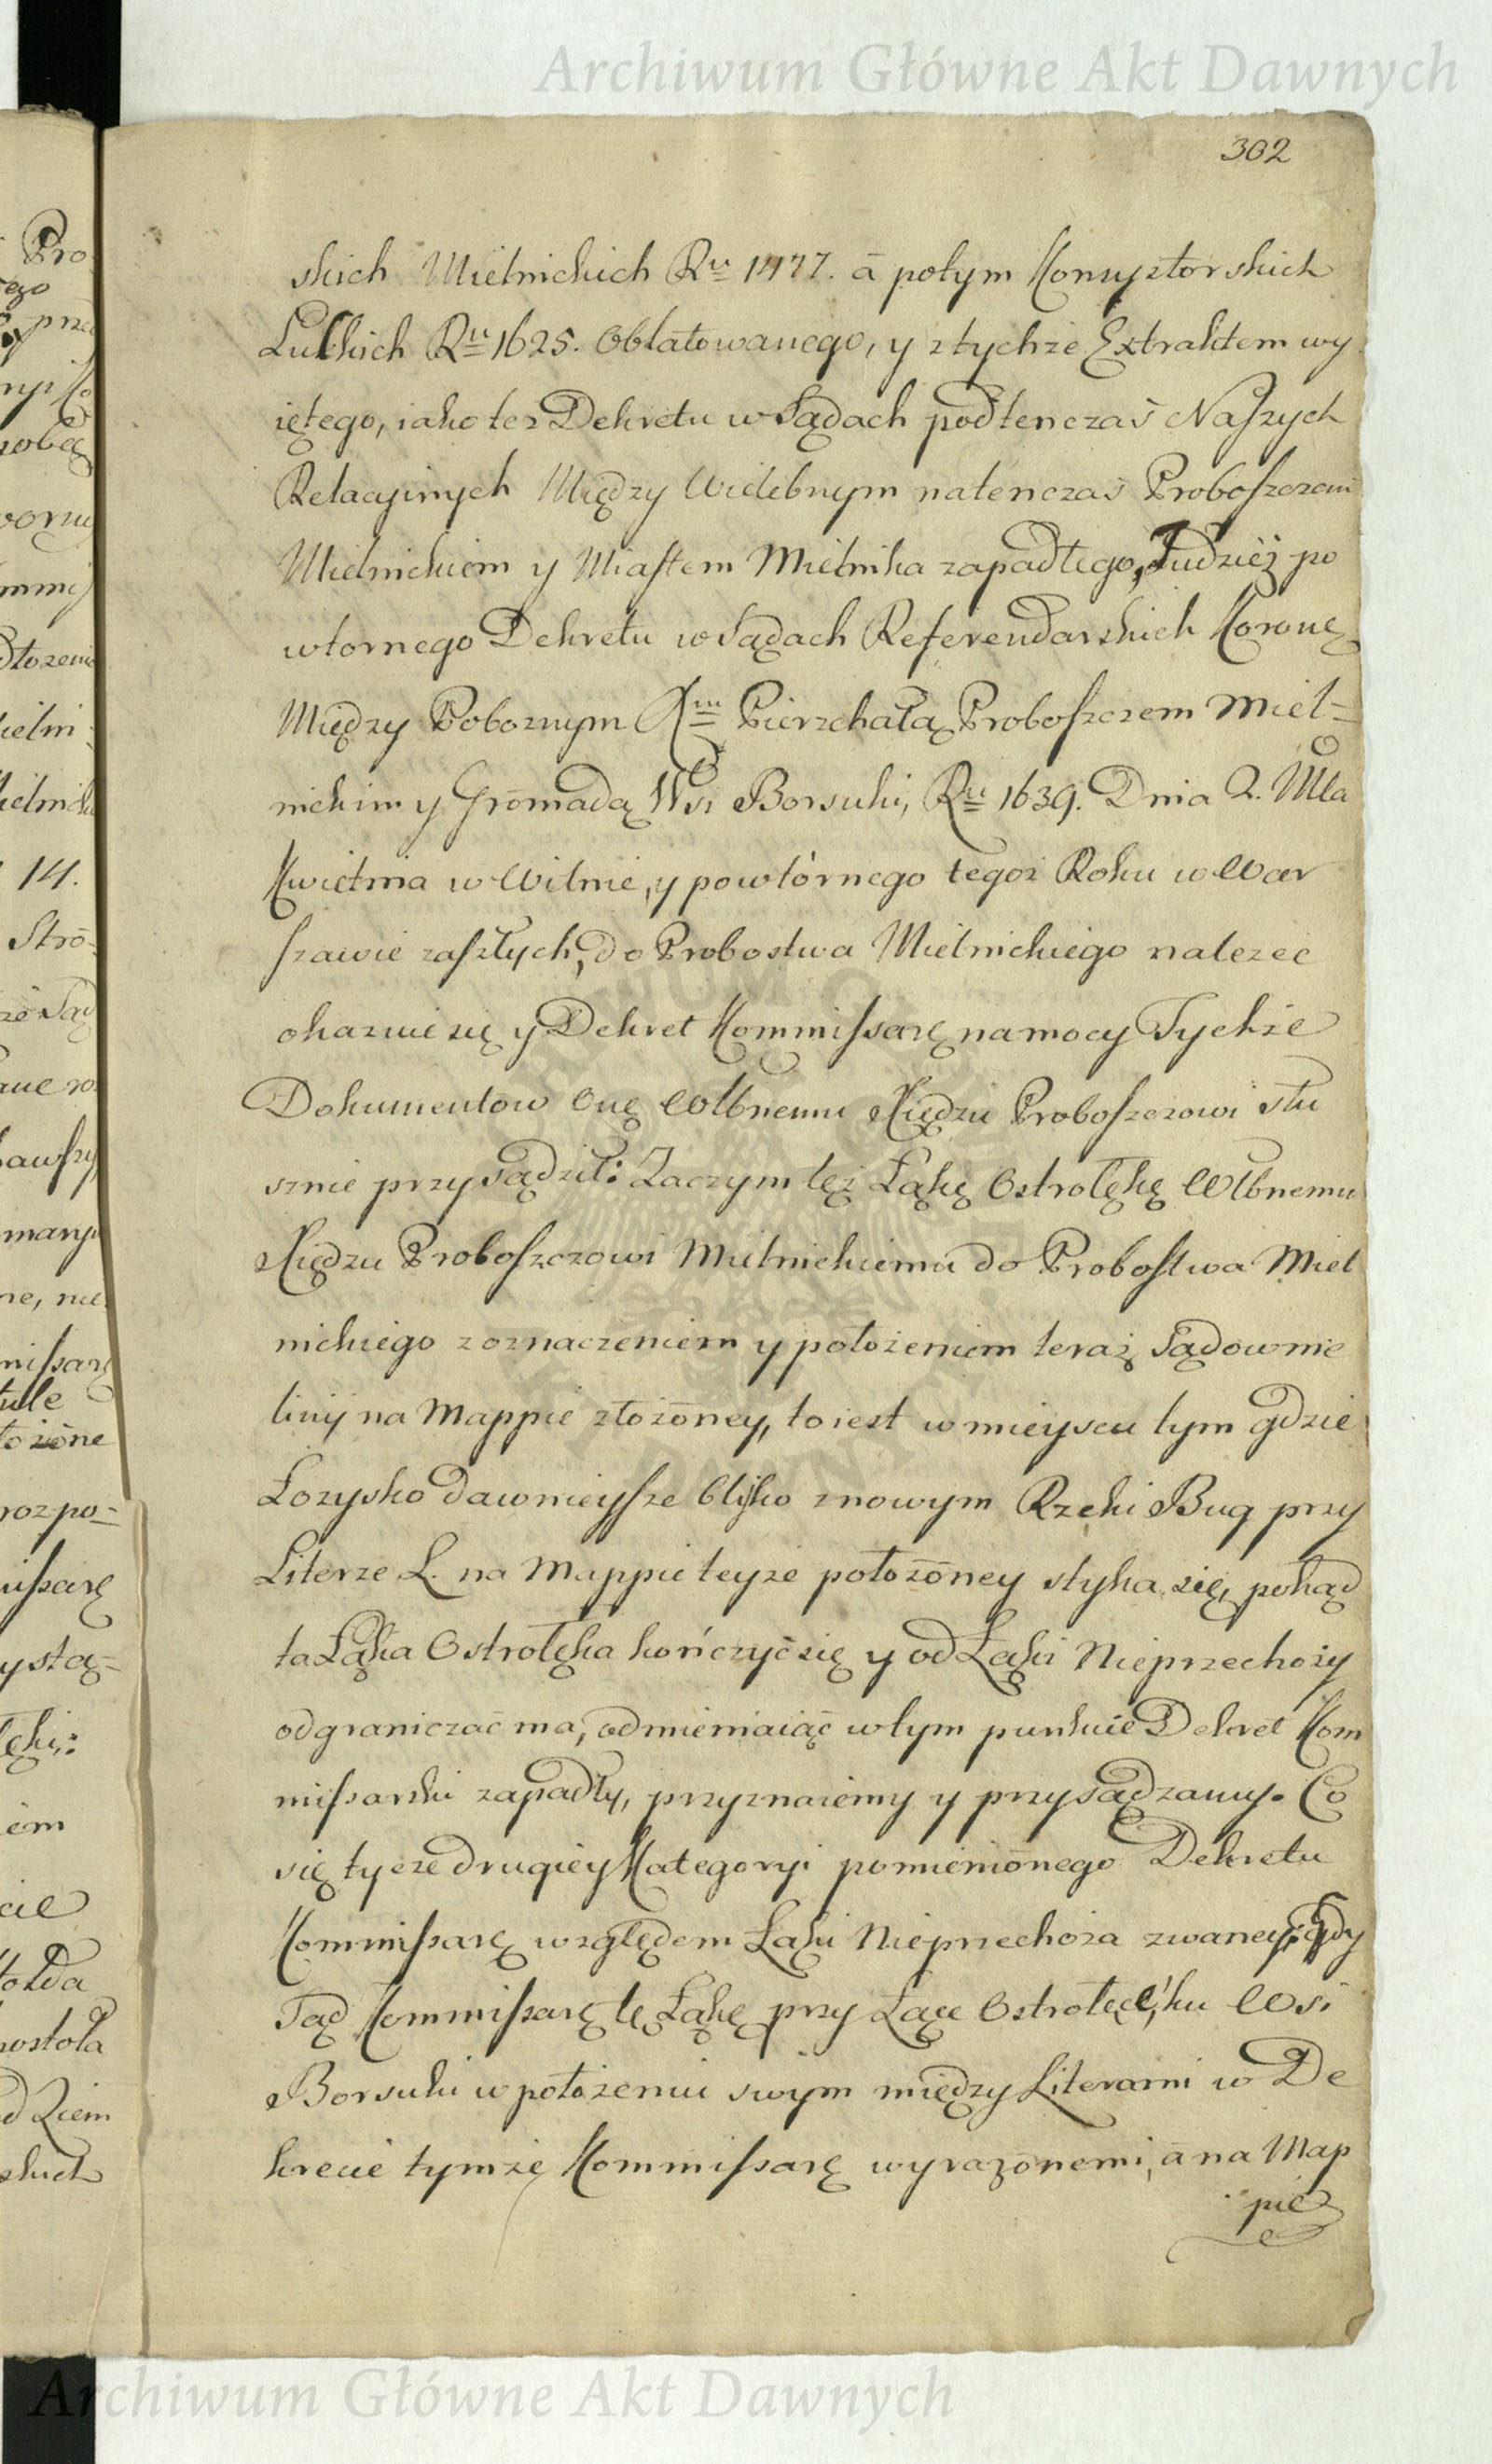 Archiwum Główne Akt Dawnych
302
skich Mielnickich Ru 1477. a potym Konsystorskich
Luckich Ru 1625. Oblatowanego, y z tychże Extraktem wy
iętego, iako tez Dekretu w Sądach podtenczas Naszych
Relacyinych Między Wielebnym natenczas Proboszczem
Mielnickiem y Miastem Mielnika zapadłego, Tudzież po
wtornego Dekretu w Sądach Referendarskich Koronę
Między Poboznym Xm Pierzchałą Proboszczem Miel=
nickim y Gromadą Wsi Borsuki, Ru 1639. Dnia 2. Mca
Kwietnia w Wilnie, y powtórnego tegoż Roku w War
szawie zaszłych, do Probostwa Mielnickiego nalezec
okazuie się y Dekret Kommissarę na mocy Tychże
Dokumentow Onę Wlbnemu Xiędzu Proboszczowi słu
sznie przysądził: Zaczym też Łąkę Ostrołękę Wlbnemu
Xiędzu Proboszczowi Mielnickiemu do Probostwa Miel
nickiego z oznaczeniem y położeniem teraz Sądownie
linij na Mappie złożoney, to iest w mieyscu tym gdzie
Łozysko dawnieysze blisko z nowym Rzeki Bug przy
Literze L. na Mappie teyże położoney styka się, pokąd
ta Łąka Ostrołęka kończyć się y od Łąki Nieprzechoży
odgraniczać ma, odmieniaiąc w tym punkcie Dekret Kom
missarski zapadły, przyznaiemy y przysądzamy. Co
się tycze drugiey Kategoryi pomienionego Dekretu
Kommissarę względem Łąki Nieprzechoża zwaney, gdy
Sąd Kommissarę tę Łąkę przy Łące Ostrołęce, ku Wsi
Borsuki w położeniu swym między Literami w De
krecie tymże Kommissarę wyrazonemi, a na Map
pie
Archiwum Główne Akt Dawnych